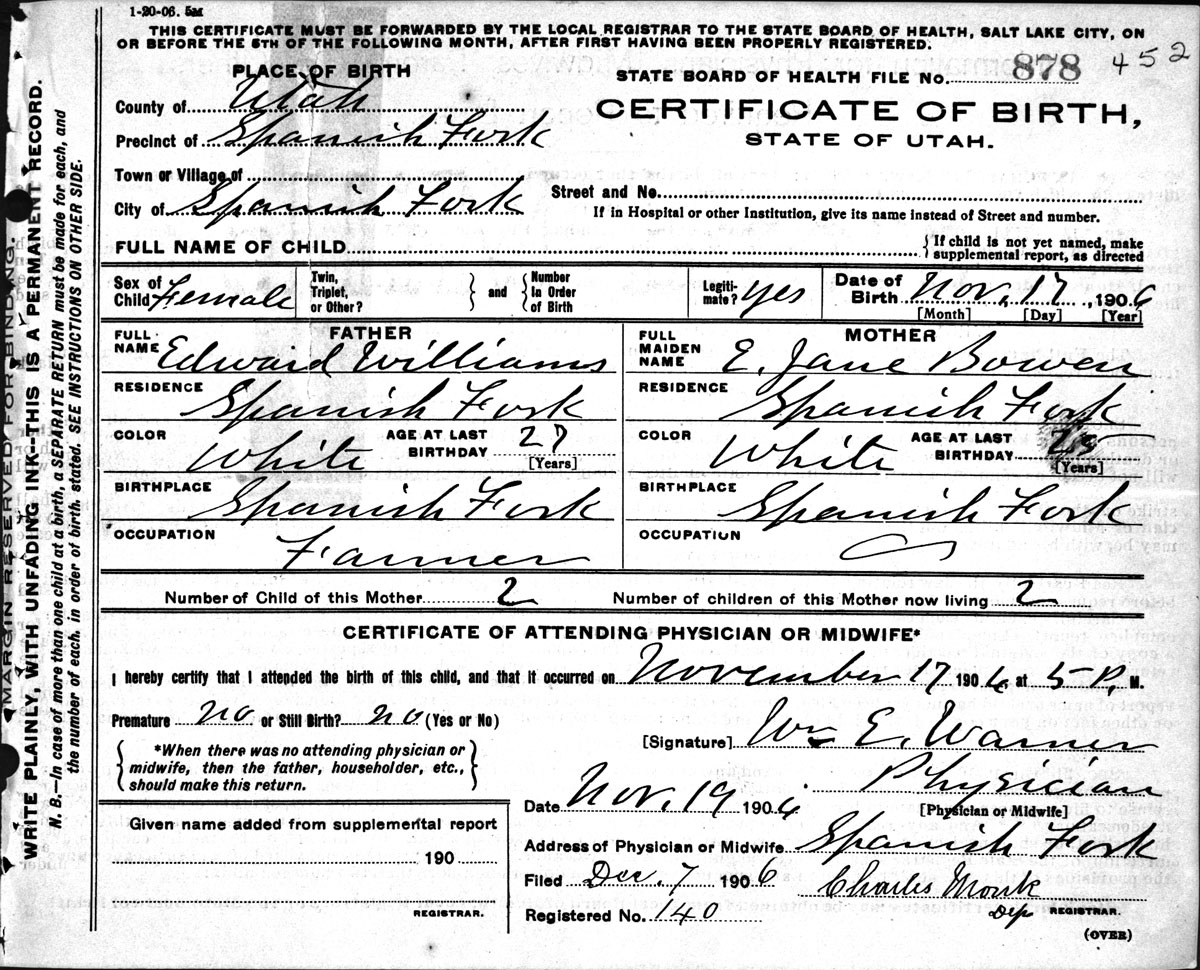 1-20-06. 5M
THIS CERTIFICATE MUST BE FORWARDED BY THE LOCAL REGISTRAR TO THE STATE BOARD OF HEALTH, SALT LAKE CITY, ON
OR BEFORE THE 5TH OF THE FOLLOWING MONTH, AFTER FIRST HAVING BEEN PROPERLY REGISTERED.
PLACE OF BIRTH
STATE BOARD OF HEALTH FILE No. 878 452
County of Utah
CERTIFICATE OF BIRTH,
Precinct of Spanish Fork
STATE OF UTAH.
Town or Village of
Street and No.
City of Spanish Fork
If in Hospital or other Institution, give its name instead of Street and number.
FULL NAME OF CHILD { If child is not yet named, make supplemental report, as directed
Sex of Child Female Twin, Triplet, or Other? } and { Number In Order of Birth Legiti-mate? yes Date of Birth Nov. 17, 1906
[Month] [Day] [Year]
FATHER MOTHER
FULL NAME Edward Williams FULL MAIDEN NAME E. Jane Bowen
RESIDENCE Spanish Fork RESIDENCE Spanish Fork
COLOR White AGE AT LAST BIRTHDAY 27 [Years] COLOR White AGE AT LAST BIRTHDAY [Years]
BIRTHPLACE Spanish Fork BIRTHPLACE Spanish Fork
OCCUPATION Farmer OCCUPATION
Number of Child of this Mother 2 Number of children of this Mother now living 2
CERTIFICATE OF ATTENDING PHYSICIAN OR MIDWIFE*
I hereby certify that I attended the birth of this child, and that it occurred on November 17 1906, at 5 P. M.
Premature no or Still Birth? no (Yes or No)
[Signature] Wm E. Warner
{ *When there was no attending physician or
midwife, then the father, householder, etc.,
should make this return. }
Physician
Date Nov. 19 1906 [Physician or Midwife]
Given name added from supplemental report
Address of Physician or Midwife Spanish Fork
190
Filed Dec. 7 1906 Charles Monk
REGISTRAR.
Registered No. 140 Dep REGISTRAR.
(OVER)
MARGIN RESERVED FOR BINDING.
WRITE PLAINLY, WITH UNFADING INK--THIS IS A PERMANENT RECORD.
N. B.—In case of more than one child at a birth, a SEPARATE RETURN must be made for each, and
the number of each, in order of birth, stated. SEE INSTRUCTIONS ON OTHER SIDE.